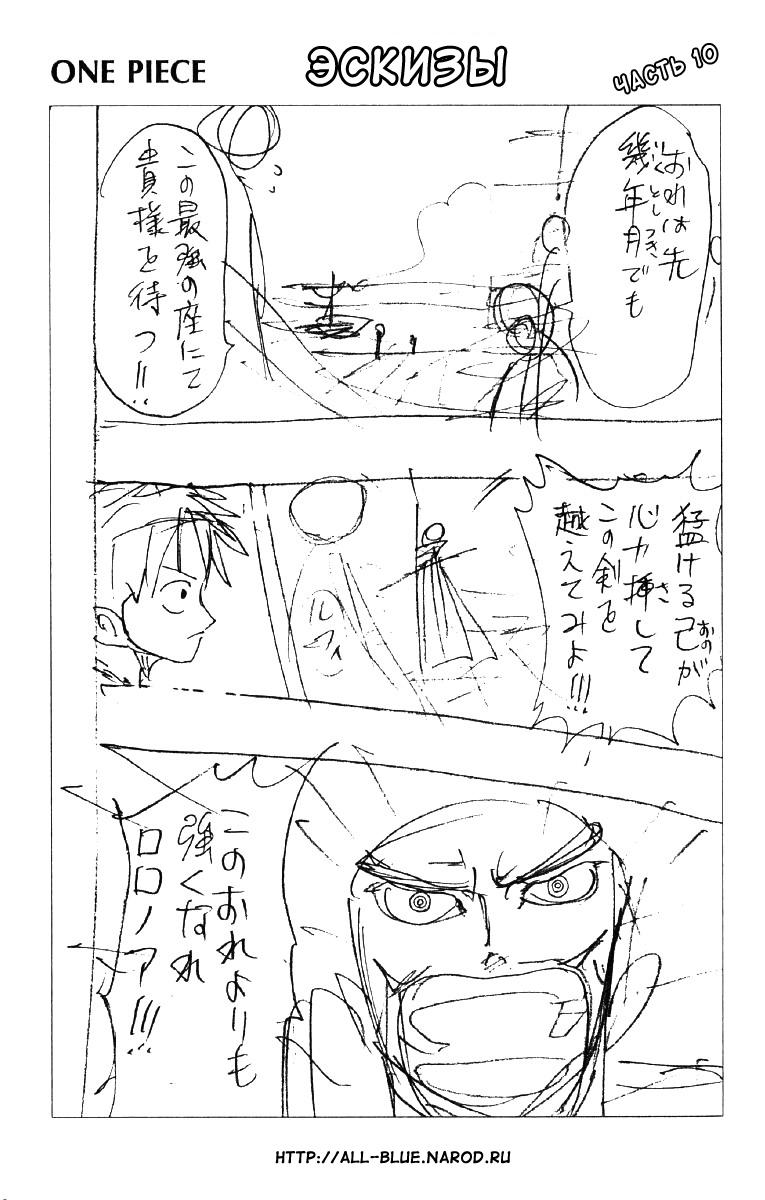 ONE PIECE
ЭСКИЗЫ
ЧАСТЬ 10
おれは先
幾年月でも
いくとしつき
この最強の座にて
貴様を待つ!!
猛ける己が
おのが
心力挿して
さ
この剣を
越えてみよ!!!
ルフィ
このおれよりも
強くなれ
ロロノア!!!
HTTP://ALL-BLUE.NAROD.RU